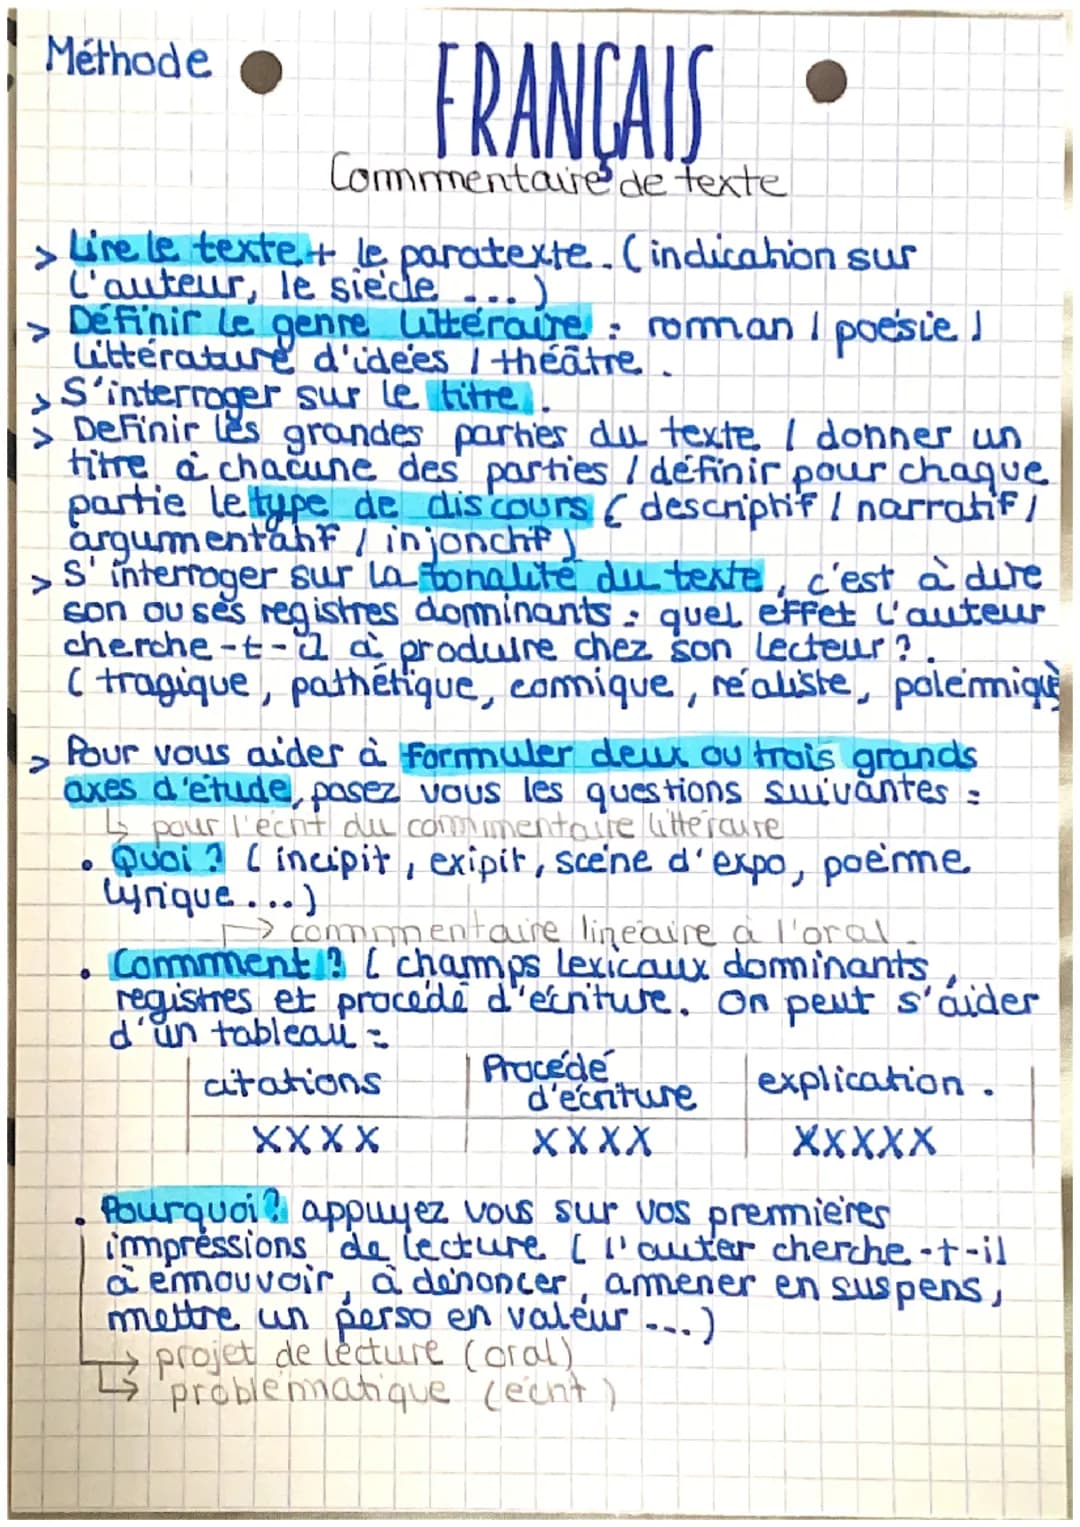 Méthode
FRANÇAIS
Commmentaire de texte
> Lire le texte + le paratexte. (indication sur
l'auteur, le siècle ...)
> Définir le genre littéraire : roman / poésie /
littérature d'idées / théâtre.
> S'interroger sur le titre.
> Definir les grandes parties du texte / donner un
titre à chacune des parties / définir pour chaque
partie le type de discours ( descriptif / narratif /
argumentatif / injonctif )
> S'interroger sur la tonalité du texte, c'est à dire
son ou ses registres dominants : quel effet l'auteur
cherche-t-il à produire chez son lecteur ?.
( tragique, pathétique, comique, réaliste, polémique
> Pour vous aider à formuler deux ou trois grands
axes d'étude, posez vous les questions suivantes :
↳ pour l'écrit du commmentaire littéraire
• Quoi ? ( incipit, exipit, scène d'expo, poème
lyrique ...)
→ commmentaire linéaire à l'oral.
• Commment ? ( champs lexicaux dominants,
registres et procédé d'écriture. On peut s'aider
d'un tableau :
citations | Procédé d'écriture | explication.
XXXX | XXXX | XXXXX
• Pourquoi ? appuyez vous sur vos premières
impressions de lecture ( l'auter cherche-t-il
à émouvoir, à dénoncer, amener en suspens,
mettre un perso en valeur ...)
↳ projet de lecture (oral)
↳ problématique (écrit)